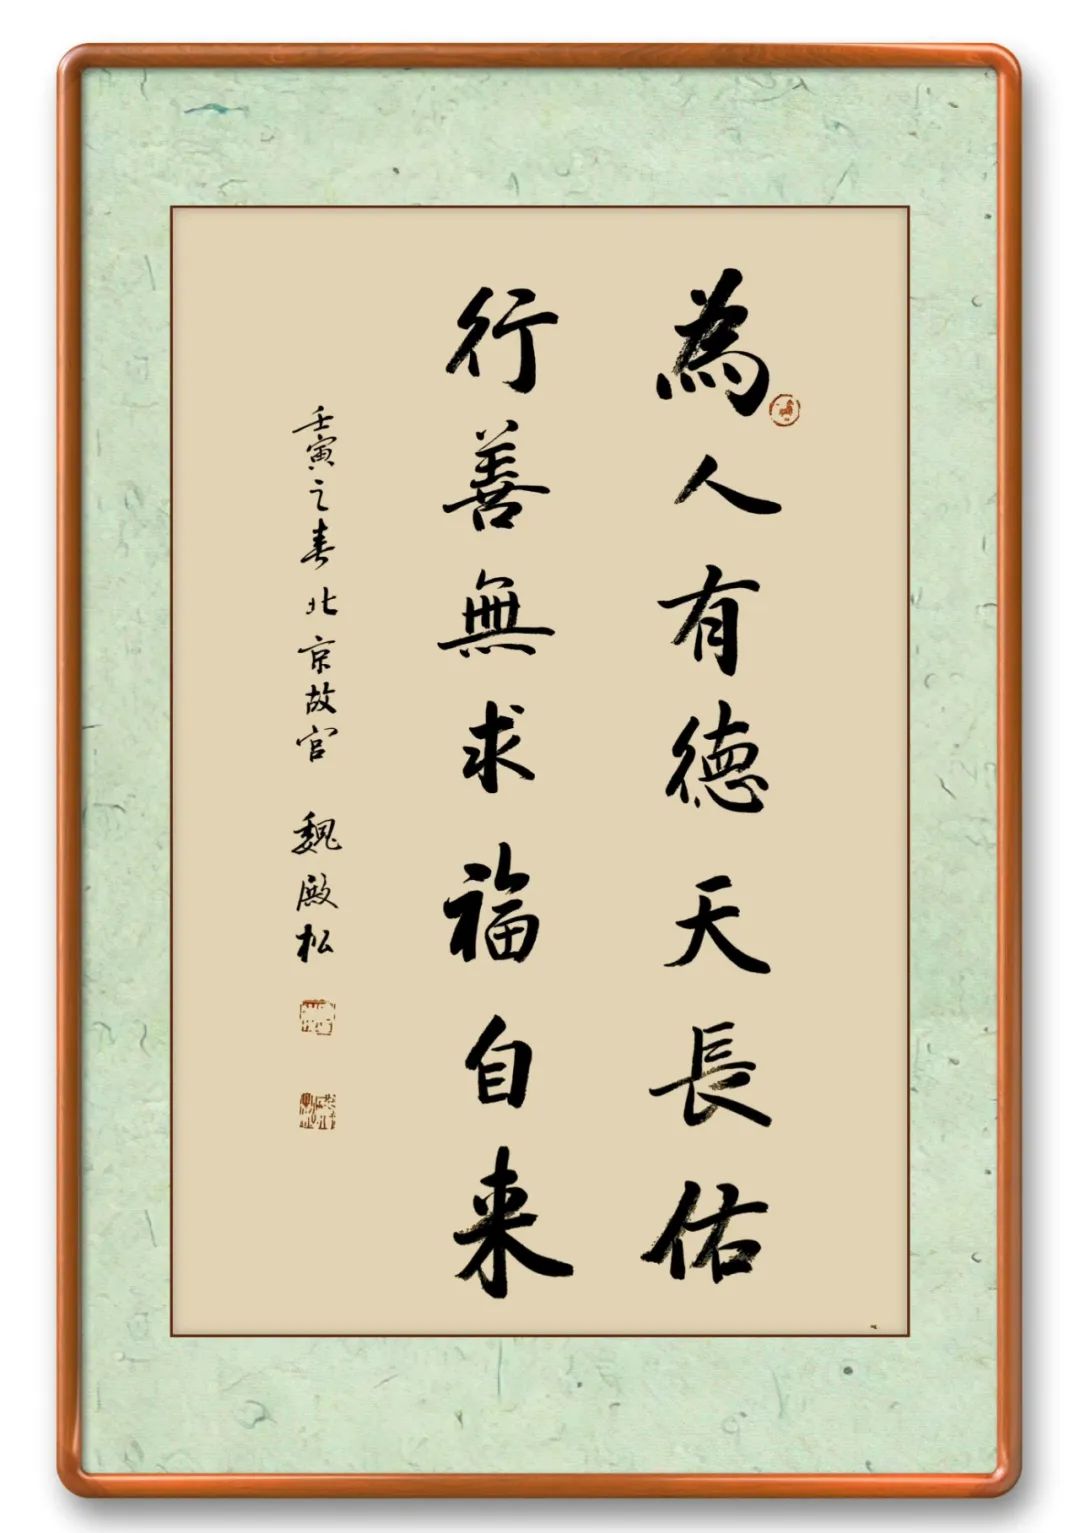 為人有德天長佑
行善無求福自来
壬寅之春北京故宫 魏殿松